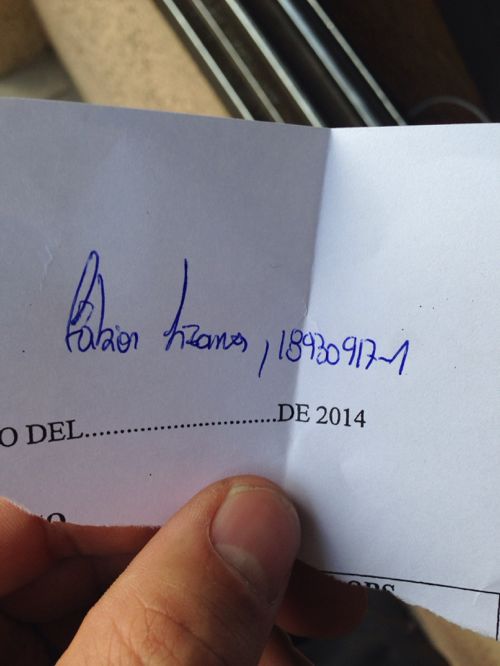 Fabian Lizana, 18930917-1
O DEL.............................DE 2014